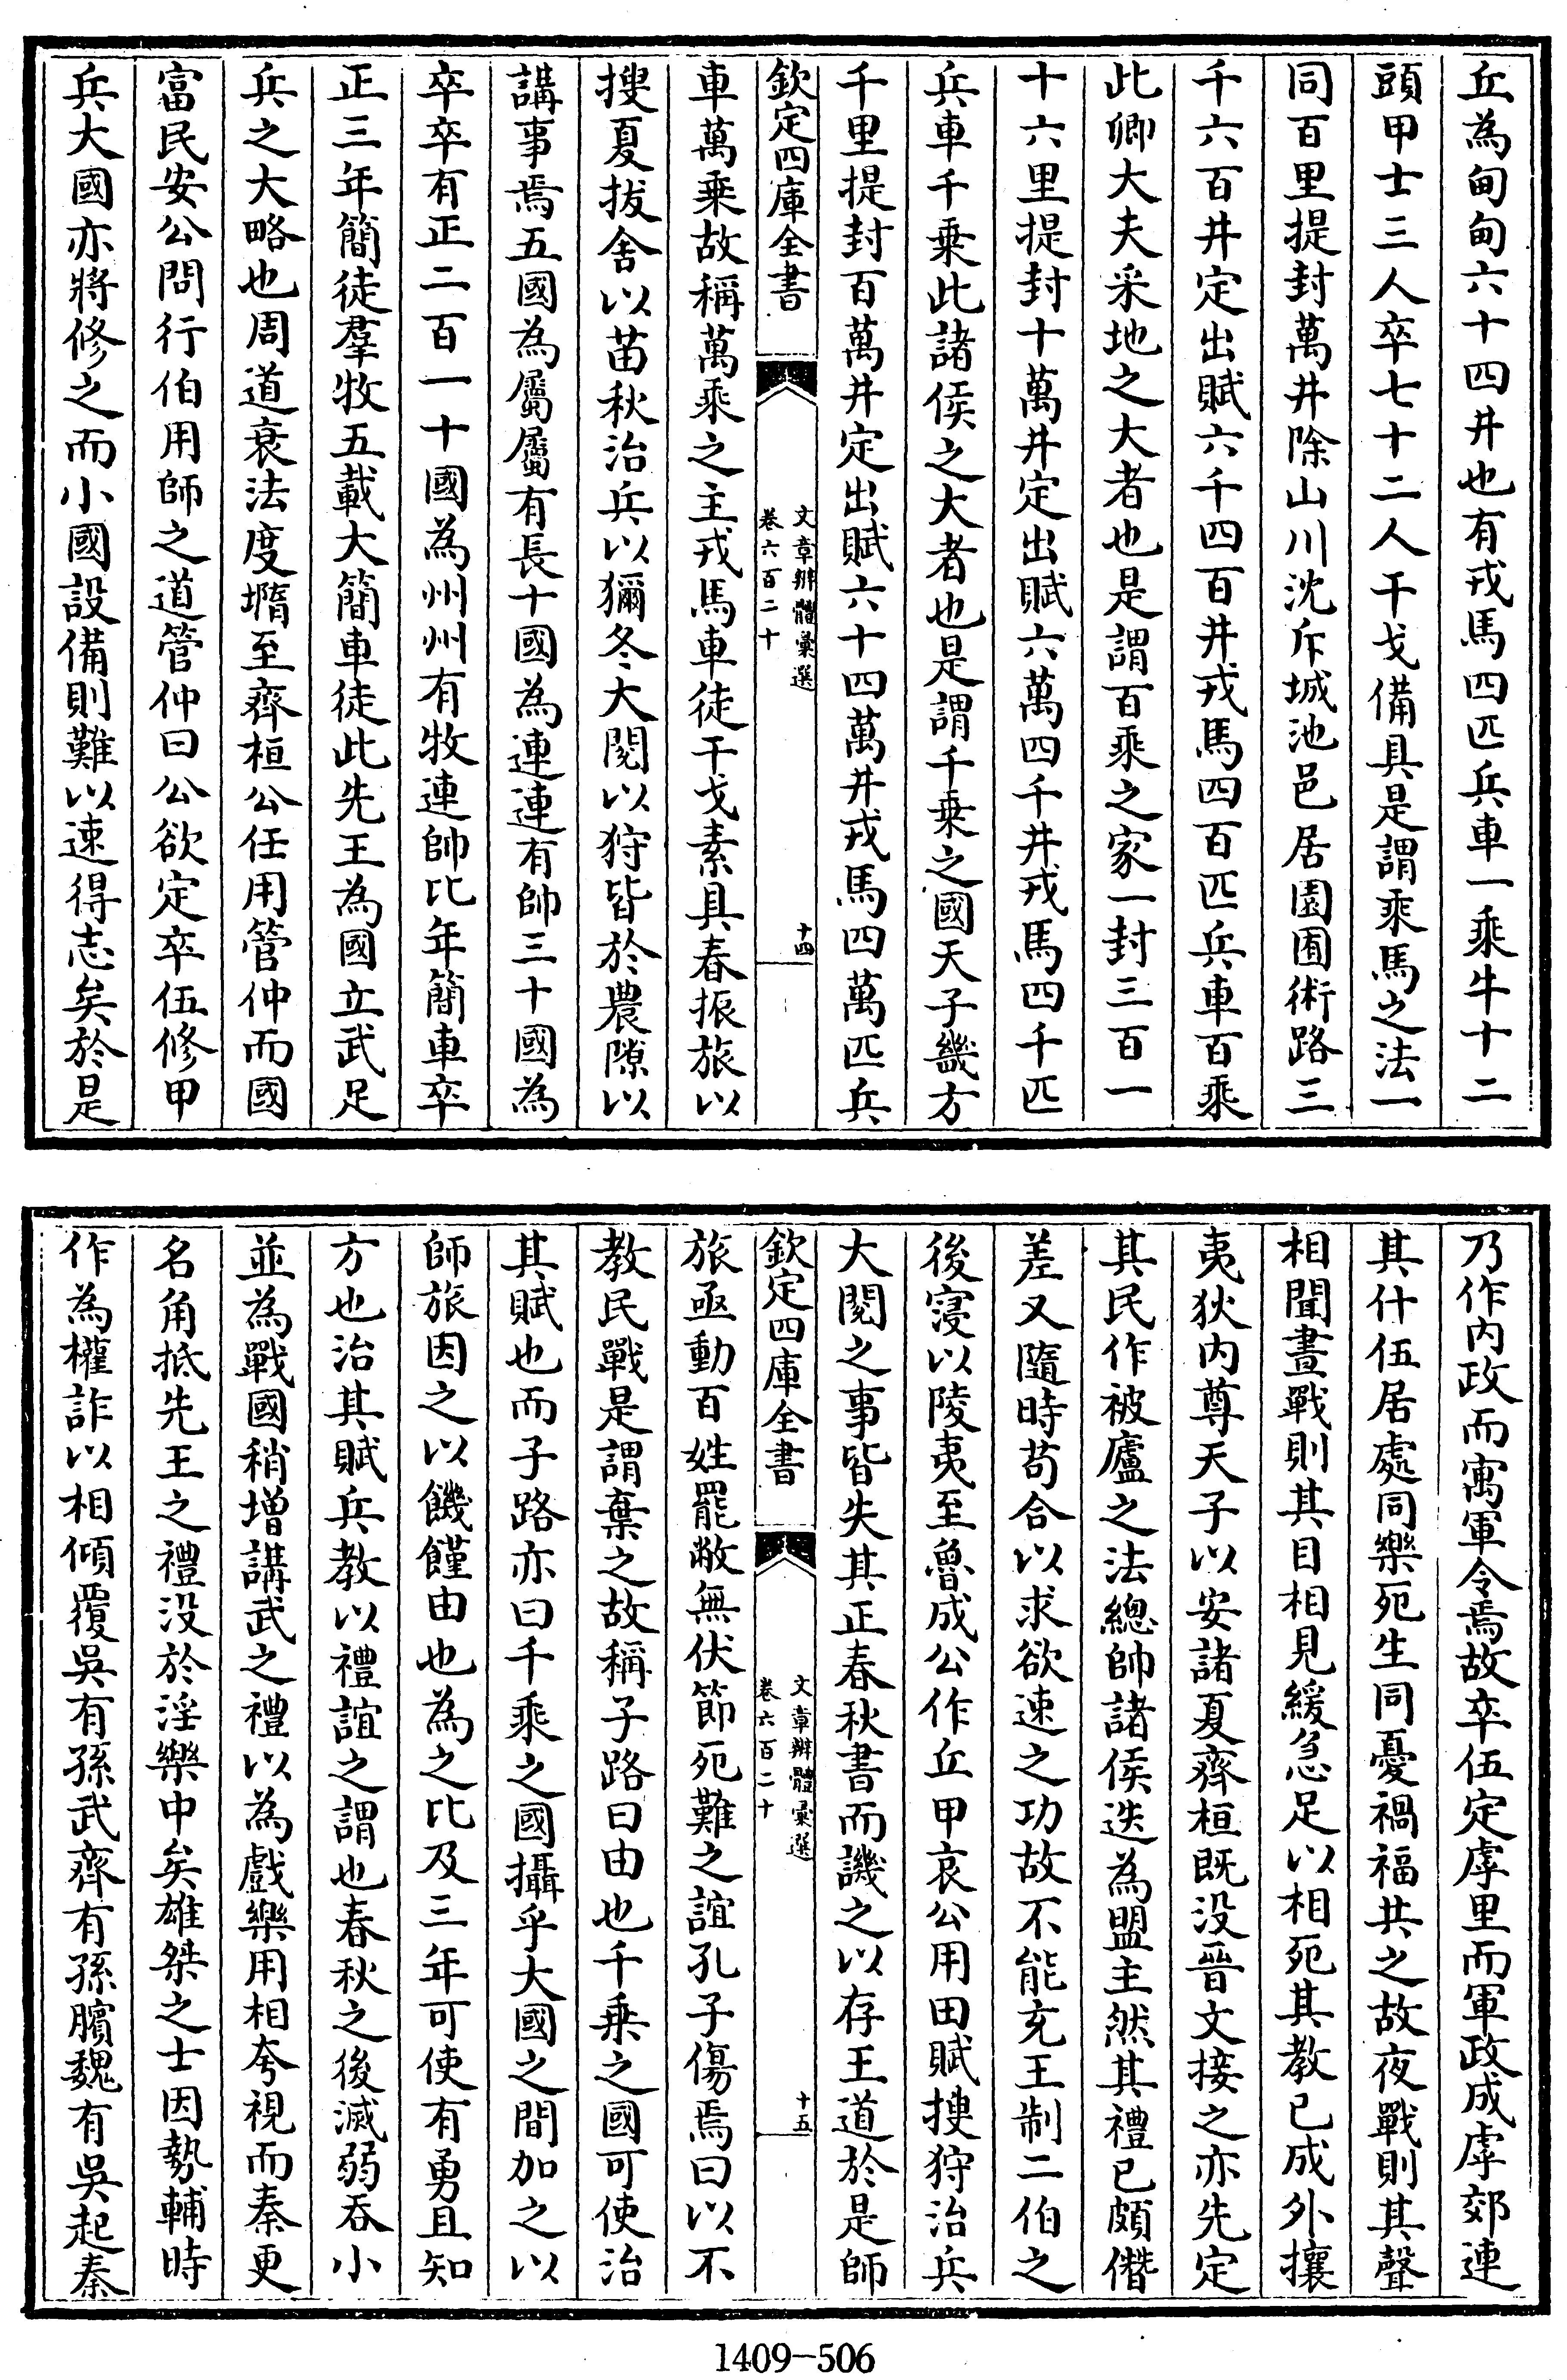 丘為甸甸六十四井也有戎馬四匹兵車一乘牛十二
頭甲士三人卒七十二人干戈備具是謂乘馬之法一
同百里提封萬井除山川沈斥城池邑居園囿術路三
千六百井定出賦六千四百井戎馬四百匹兵車百乘
此卿大夫采地之大者也是謂百乘之家一封三百一
十六里提封十萬井定出賦六萬四千井戎馬四千匹
兵車千乘此諸侯之大者也是謂千乘之國天子畿方
千里提封百萬井定出賦六十四萬井戎馬四萬匹兵
欽定四庫全書
文章辨體彙選
卷六百二十
十四
車萬乘故稱萬乘之主戎馬車徒干戈素具春振旅以
搜夏拔舍以苗秋治兵以獮冬大閱以狩皆於農隙以
講事焉五國為屬屬有長十國為連連有帥三十國為
卒卒有正二百一十國為州州有牧連帥比年簡車卒
正三年簡徒羣牧五載大簡車徒此先王為國立武足
兵之大略也周道衰法度墮至齊桓公任用管仲而國
富民安公問行伯用師之道管仲曰公欲定卒伍修甲
兵大國亦將修之而小國設備則難以速得志矣於是
乃作内政而寓軍令焉故卒伍定虖里而軍政成虖郊連
其什伍居處同樂死生同憂禍福共之故夜戰則其聲
相聞晝戰則其目相見緩急足以相死其教已成外攘
夷狄内尊天子以安諸夏齊桓既没晉文接之亦先定
其民作被廬之法總帥諸侯迭為盟主然其禮已頗僭
差又隨時苟合以求欲速之功故不能充王制二伯之
後寖以陵夷至魯成公作丘甲哀公用田賦搜狩治兵
大閱之事皆失其正春秋書而譏之以存王道於是師
欽定四庫全書
文章辨體彙選
卷六百二十
十五
旅亟動百姓罷敝無伏節死難之誼孔子傷焉曰以不
教民戰是謂棄之故稱子路曰由也千乘之國可使治
其賦也而子路亦曰千乘之國攝乎大國之間加之以
師旅因之以饑饉由也為之比及三年可使有勇且知
方也治其賦兵教以禮誼之謂也春秋之後滅弱吞小
並為戰國稍增講武之禮以為戲樂用相夸視而秦更
名角抵先王之禮没於淫樂中矣雄桀之士因勢輔時
作為權詐以相傾覆吳有孫武齊有孫臏魏有吳起秦
1409-506